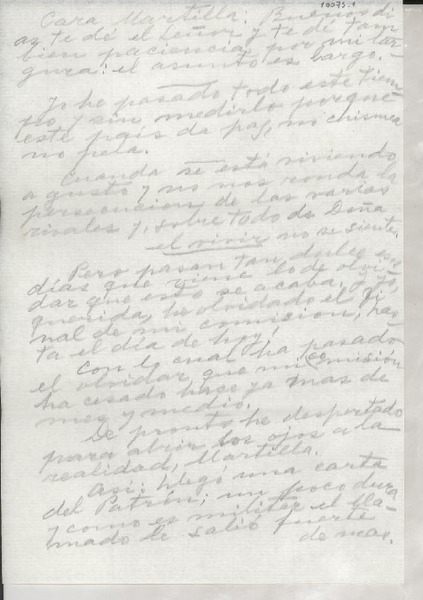 10075-1
Cara Martilla: Buenos di
az te dé el Señor y te dé tam
bien paciencia por mi lar
gura: el asunto es largo.
Yo he pasado todo este tiem
po y sin medirlo porque
este país da paz, no chismea
no pela.
Cuando se está viviendo
a gusto y no nos ronda la
persecucion de las varias
rivales y, sobre todo de Doña
el vivir no se siente.
Pero pasan tan dulces esos
días que viene lo de olvi
dar que esto se acaba, y yo,
querida, he olvidado el fi
nal de mi comision, has
ta el día de hoy!
Con lo cual ha pasado
el olvidar que mi comisión
ha cesado hace ya mas de
mes y medio.
De pronto he despertado
para abrir los ojos a la
realidad, Martilla.
Asi: llegó una carta
del Patrón; un poco dura
y como es militar el lla-
mado le salió fuerte
de mas.